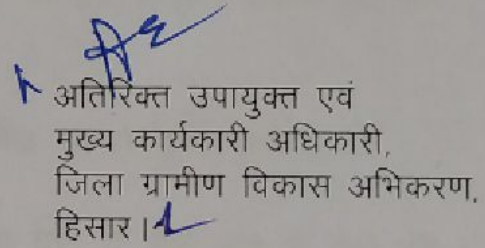 अतिरिक्त उपायुक्त एवं
मुख्य कार्यकारी अधिकारी,
जिला ग्रामीण विकास अभिकरण,
हिसार।